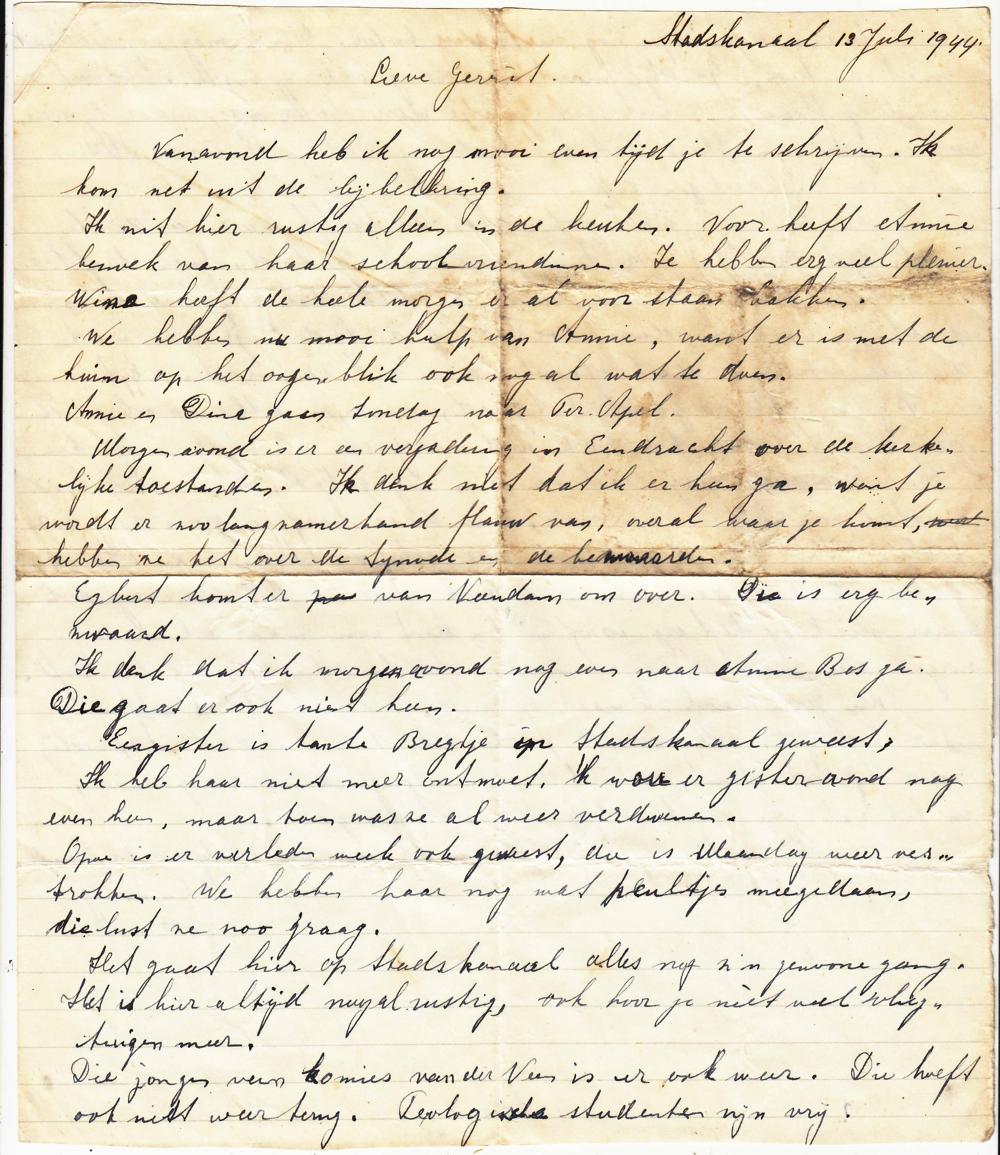 Stadskanaal 13 Juli 1944.
Lieve Gerrit.
Vanavond heb ik nog mooi even tijd je te schrijven. Ik
kom net uit de bijbelkring.
Ik zit hier rustig alleen in de keuken. Voor heeft Annie
bezoek van haar schoolvriendinnen. Ze hebben erg veel plezier.
Wina heeft de hele morgen er al voor staan bakken.
We hebben nu mooi hulp van Annie, want er is met de
tuin op het oogenblik ook nog al wat te doen.
Annie en Dina gaan Zondag naar Ter. Apel.
Morgenavond is er een vergadering in Eendracht over de kerke„
lijke toestanden. Ik denk niet dat ik er heen ga, want je
wordt er zoo langzamerhand flauw van, overal waar je komt,
hebben ze het over de Synode en de bezwaarden.
Egbert komt er van Veendam om over. Die is erg be„
zwaard.
Ik denk dat ik morgenavond nog even naar Annie Bos ga.
Die gaat er ook niet heen.
Eergister is tante Bregtje in Stadskanaal geweest,
Ik heb haar niet meer ontmoet. Ik wou er gisteravond nog
even heen, maar toen was ze al weer verdwenen.
Opoe is er verleden week ook geweest, die is Maandag weer ver„
trokken. We hebben haar nog wat peultjes meegedaan,
die lust ze zoo graag.
Het gaat hier op Stadskanaal alles nog z'n gewone gang.
Het is hier altijd nogal rustig, ook hoor je niet veel vlieg„
tuigen meer.
Die jongen van komies van der Veen is er ook weer. Die hoeft
ook niet weer terug. Teologische studenten zijn vrij.